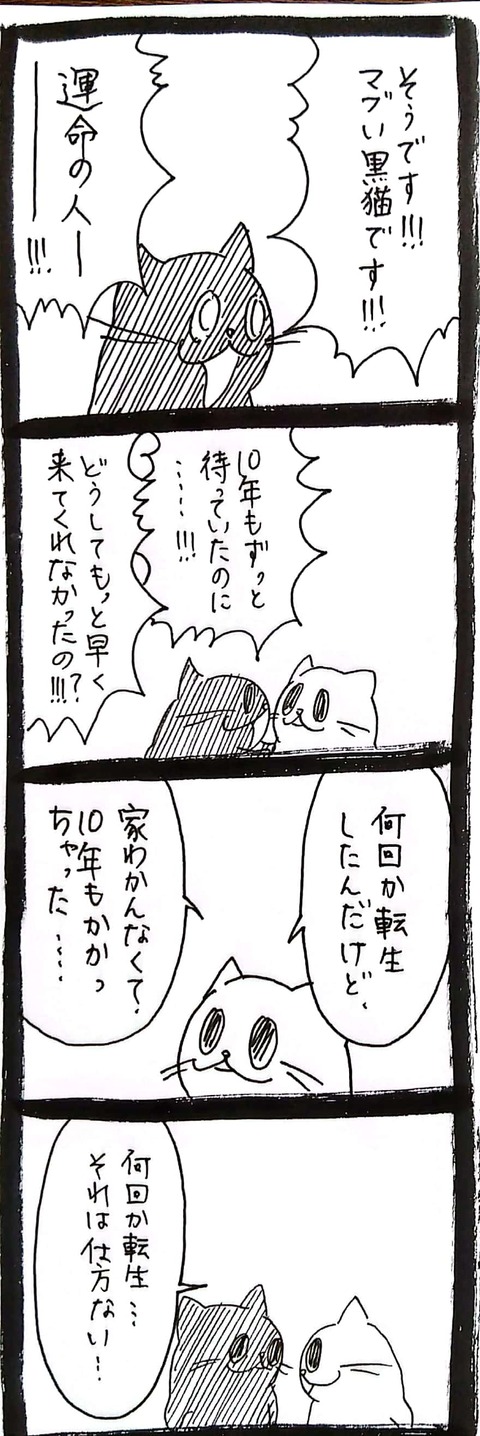 そうです!!!
マブい黒猫です!!!
運命の人ー
――!!!
10年もずっと
待っていたのに
……!!!
どうしてもっと早く
来てくれなかったの!!!?
何回か転生
したんだけど、
家わかんなくて、
10年もかかっ
ちゃった……
何回か転生…
それは仕方ない…